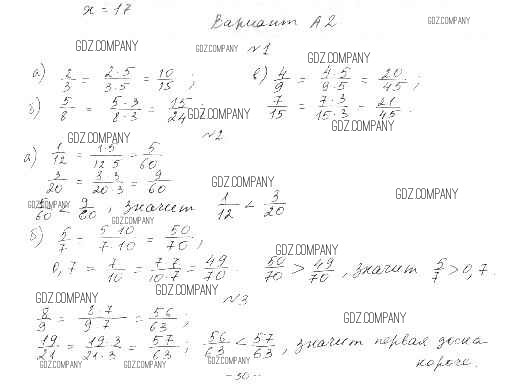 x = 17
Вариант А2
GDZ.COMPANY
GDZ.COMPANY
GDZ.COMPANY
№1
GDZ.COMPANY
а) 2/3 = 2·5/3·5 = 10/15 ;
в) 4/9 = 4·5/9·5 = 20/45 ;
б) 5/8 = 5·3/8·3 = 15/24
GDZ.COMPANY
7/15 = 7·3/15·3 = 21/45 .
GDZ.COMPANY
GDZ.COMPANY
№2
а) 1/12 = 1·5/12·5 = 5/60
3/20 = 3·3/20·3 = 9/60
GDZ.COMPANY
GDZ.COMPANY
GDZ.COMPANY
5/60 < 9/60 , значит 1/12 < 3/20
GDZ.COMPANY
б) 5/7 = 5·10/7·10 = 50/70 ;
GDZ.COMPANY
0,7 = 7/10 = 7·7/10·7 = 49/70 . 50/70 > 49/70 , значит 5/7 > 0,7.
GDZ.COMPANY
GDZ.COMPANY
GDZ.COMPANY
№3
8/9 = 8·7/9·7 = 56/63 ;
GDZ.COMPANY
19/21 = 19·3/21·3 = 57/63 ; 56/63 < 57/63 , значит первая доска
короче.
GDZ.COMPANY
GDZ.COMPANY
GDZ.COMPANY
- 50 -